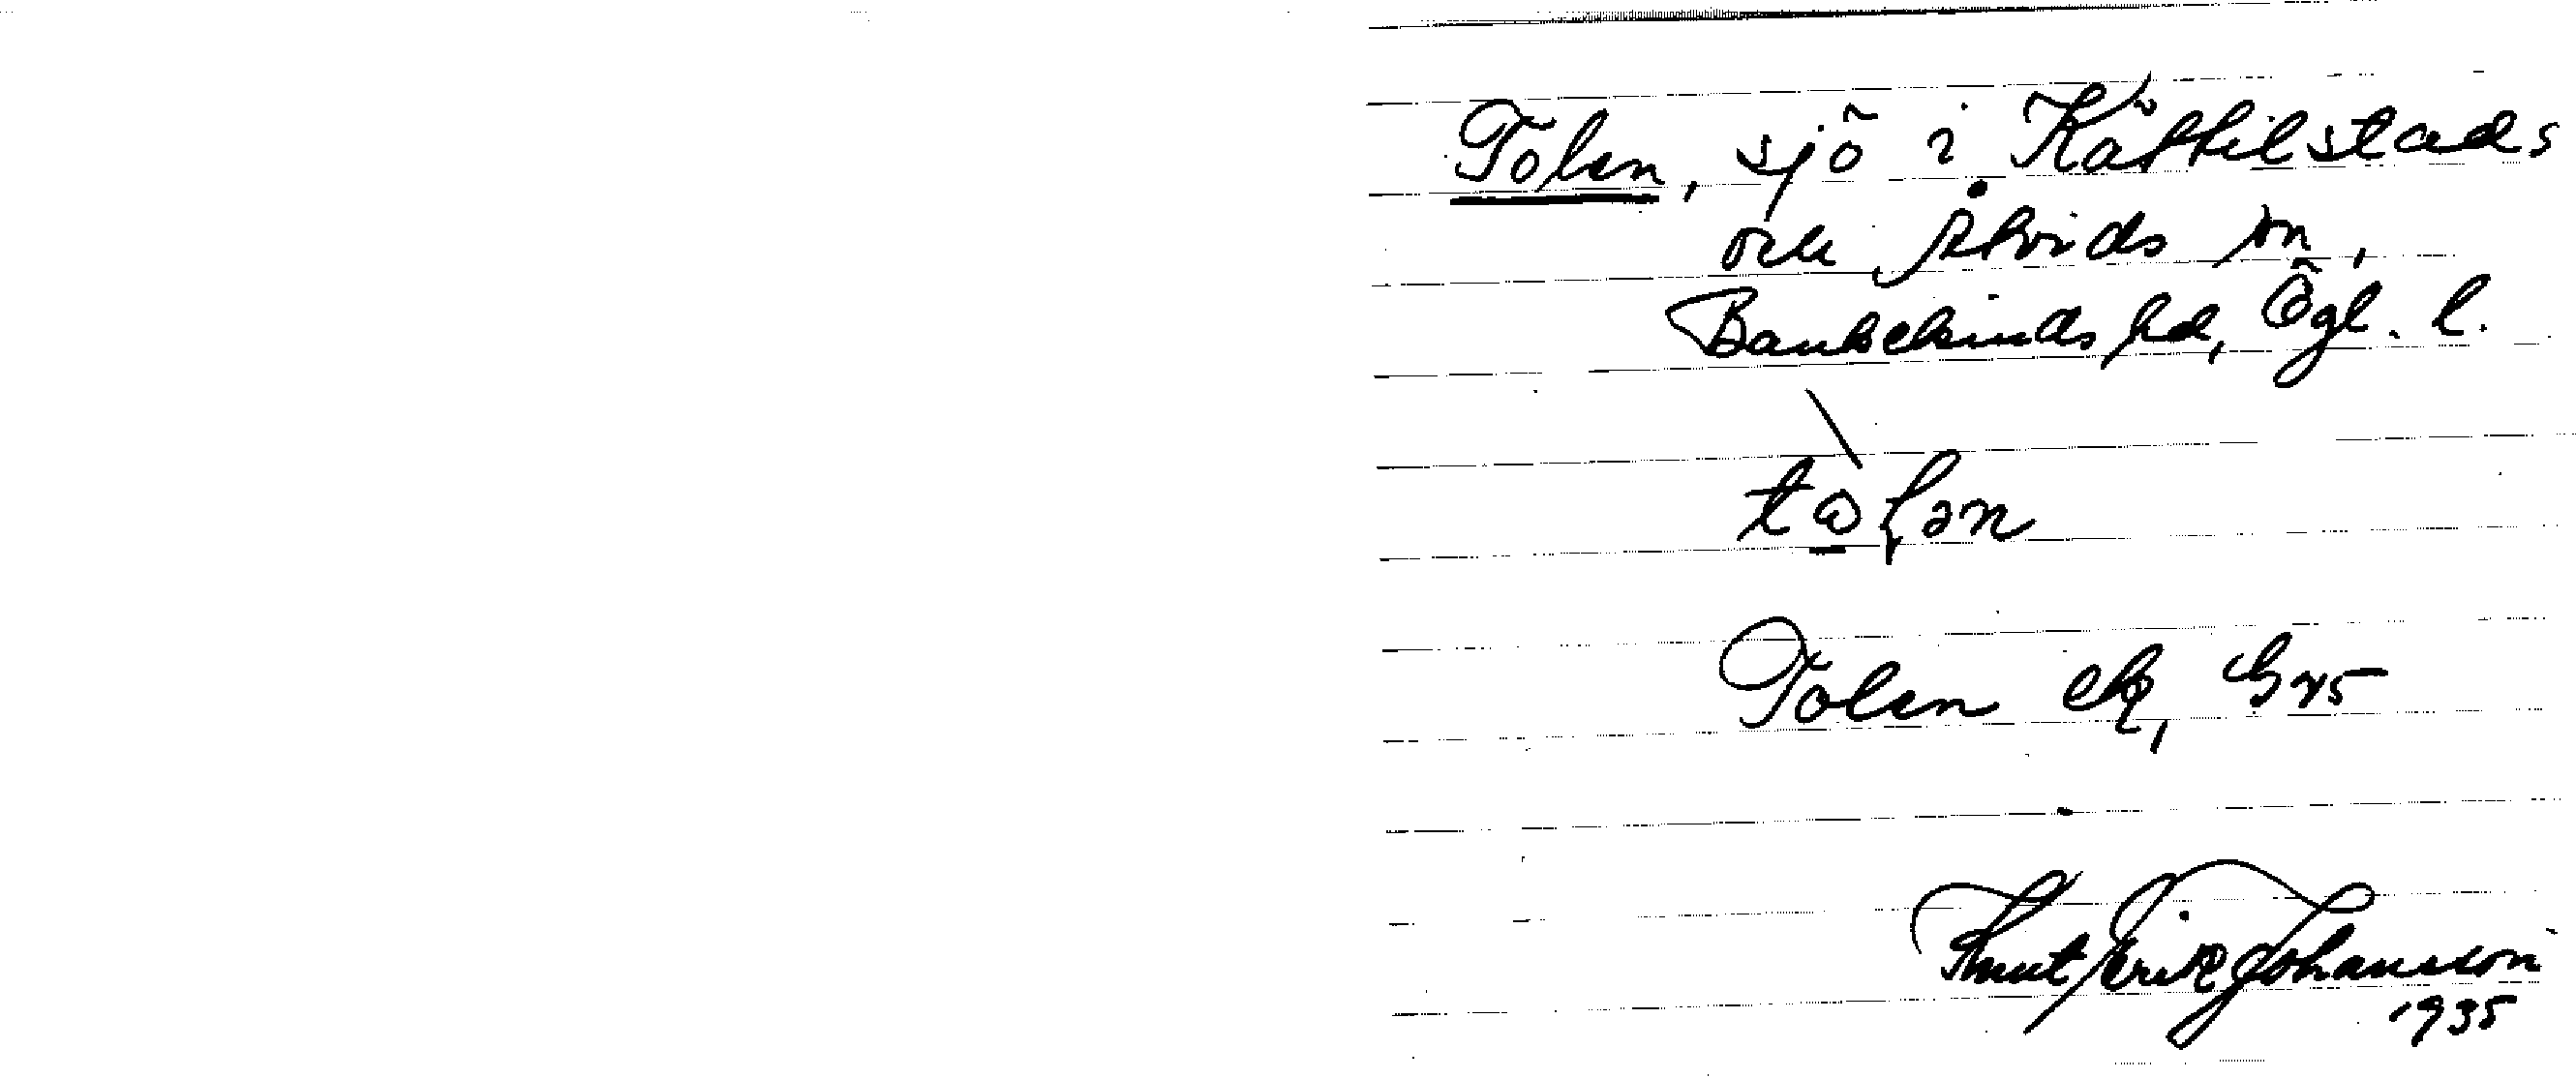 Tolen, sjö i Kättilstads
och Åtvids snr,
Bankekinds hd, Ögl. l.
tɷlən
Tolen ek, G
Knut Erik Johansson
1935